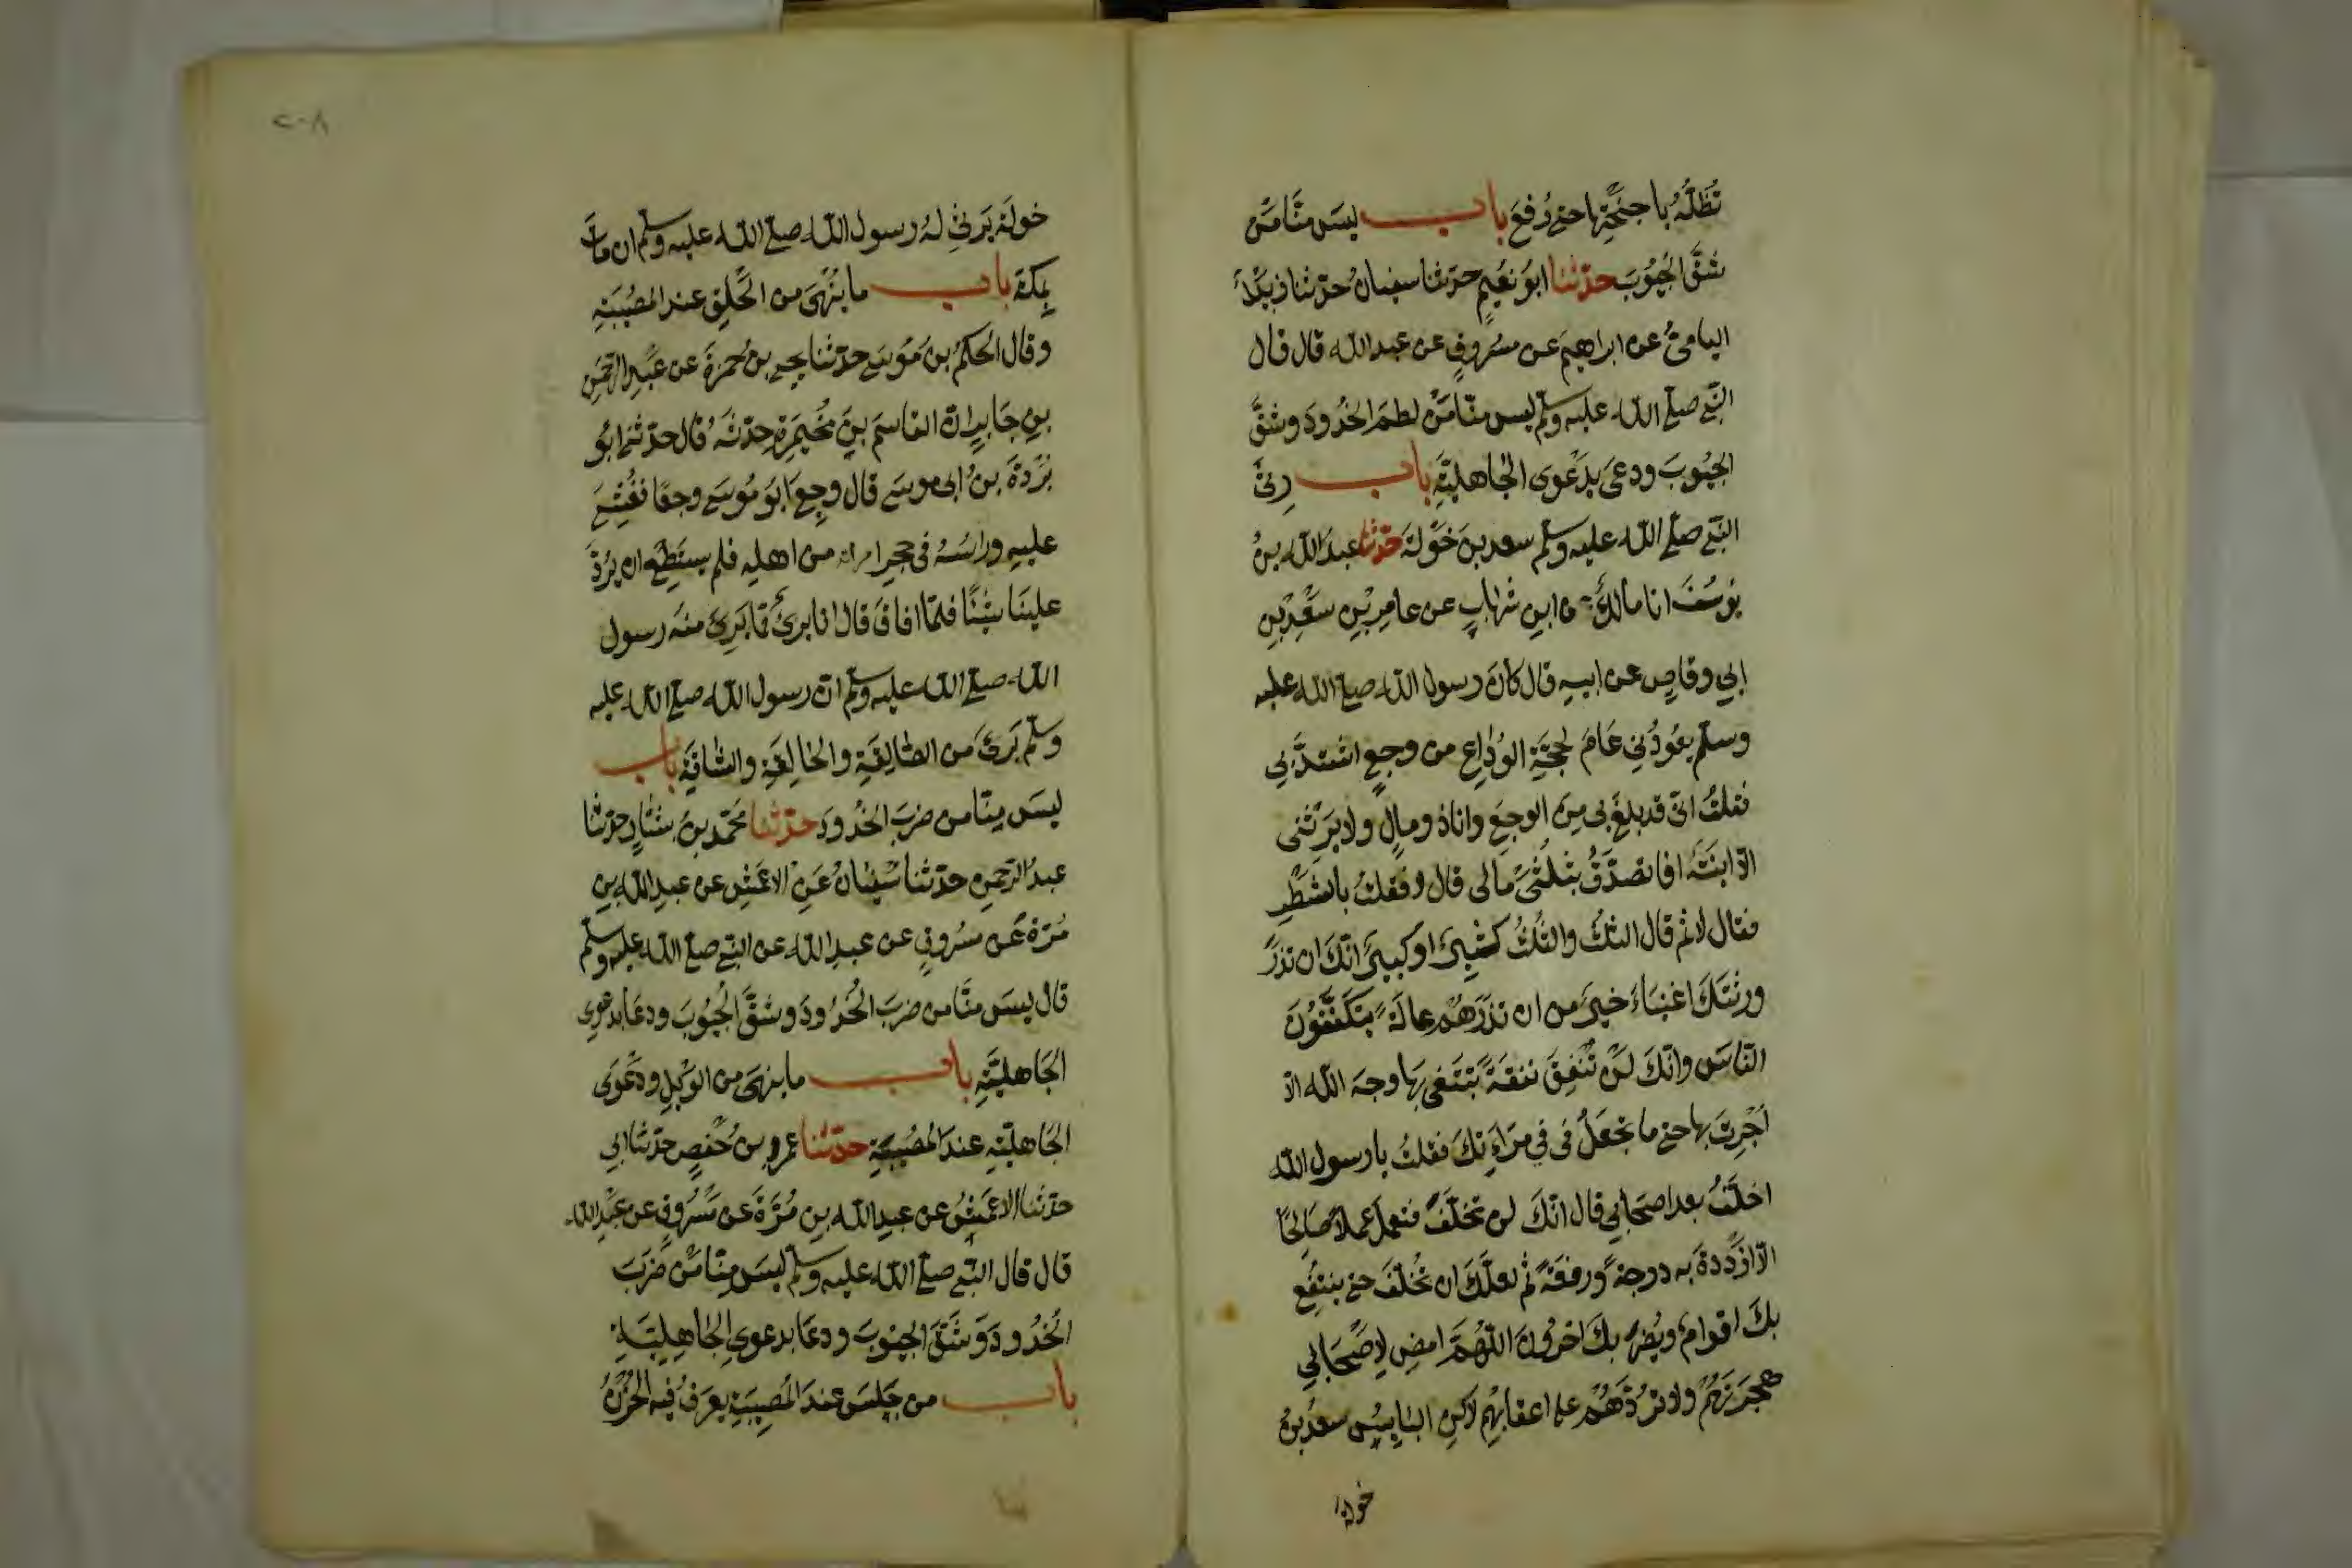 تُظِلُّهُ باجنحَتِها حتى رُفِعَ باب ليسَ منّا مَنْ
شقَّ الجُيُوبَ حدّثنا ابو نُعَيمٍ حدّثنا سفيانُ حدّثنا زبيدٌ
الياميُّ عن ابراهيمَ عن مسروقٍ عن عبد الله قال قال
النبي صلى الله عليه وسلم ليس منّا مَنْ لطمَ الخُدُودَ وشقَّ
الجيُوبَ ودعى بِدَعْوى الجاهليَّةِ باب رِثَى
النبي صلى الله عليه وسلم سعد بن خَوْلةَ حدّثنا عبد الله بنُ
يُوسُفَ انا مالكٌ عن ابنِ شهابٍ عن عامِرِ بْنِ سَعْدِ بْنِ
ابي وقاصٍ عن ابيه قال كانَ رسول الله صلى الله عليه
وسلم يعُودُني عَامَ حجَّةِ الوَداعِ من وجعٍ اشتدَّ بِي
فقلتُ انّى قد بلغَ بى مِنَ الوجعِ وانا ذو مالٍ ولا يَرِثُنى
الّا ابنَتهُ افا تصدَّقُ بثلُثَىْ مالى قال لا فقلتُ بالشطْرِ
فقال لا ثم قال الثلثُ والثُّلثُ كثيرٌ او كبيرٌ انّكَ ان تذرَ
ورثتكَ اغنياءَ خيرٌ من ان تذرَهُمْ عالَةً يتكَفَّفُونَ
النّاسَ وانّكَ لَنْ تُنْفِقَ نفقَةً تبْتَغى بها وجهَ الله الّا
أُجِرْتَ بها حتى ما تجْعَلُ فى فِي مرَاءَتِكَ فقلتُ يا رسول الله
اخلَّفُ بعد اصحَابي قال انّكَ لن تخلَّفَ فتعملَ عملاً صَالِحًا
الّا ازْدَدْدةَ به درجةً ورفعَةً ثم لعلَّكَ ان تُخَلَّفَ حتى ينتفِع
بكَ اقوامٌ ويُضرَّ بكَ اخرُونَ اللّهُمَّ امضِ لِاصْحَابي
هجرَتَهُمْ ولا تَرُدَّهُمْ على اعقابِهِم لاكنِ البايِسُ سعدُ بنُ
خوله
٢٠٨
خولةَ يَرثِى لهُ رسول الله صلى الله عليه وسلم ان ماتَ
بمكة باب ما يُنْهىَ من الحَلقِ عند المصُيبَةِ
وقال الحكمُ بنُ مُوسَى حدّثنا يحيى بنُ حمزةَ عن عَبْدِ الرّحمنِ
بنِ جَابِرٍ انّ القاسَمَ بنَ مُخَيمِرَةَ حدّثهُ قال حدّثنى ابُو
بُرْدةَ بنُ ابى موسَى قال وجِعَ ابوَ مُوسَى وجعًا فغُشِىَ
عليهِ وراسُهُ فى حجرِ امراة من اهلِهِ فلم يستَطِعْ ان يرُدَّ
عليهَا شيئًا فلمّا افاقَ قال انا برىٌ ممّا بَرِئ منه رسول
الله صلى الله عليه وسلم انّ رسول الله صلى الله عليه
وسلم بَرِئَ من الصّالِقَةِ والحالِقَةِ والشاقّةِ باب
ليسَ مِنّا من ضربَ الخُدُودَ حدّثنا محمّد بنُ بشّارٍ حدّثنا
عبدُ الرّحمنِ حدّثنا سُفيانُ عَنِ الاعمَشِ عن عبدِ اللهِ بنِ
مُرّةَ عن مسرُوقٍ عن عبد الله عن النبي صلى الله عليه وسلم
قال ليسَ منّا من ضربَ الخُدُودَ وشقَّ الجُيُوبَ ودعَا بدعوى
الجَاهليَّةِ باب ما ينهىَ من الوَيْلِ ودَعْوَى
الجَاهليّةِ عندَ المصُيبةِ حدّثنا عمرو بنُ حَفصٍ حدّثنا ابي
حدّثنا الاعْمَشُ عن عبد الله بنِ مُرَّةَ عن مَسْرُوقٍ عن عَبْدِ الله
قال قال النبي صلى الله عليه وسلم ليسَ مِنّا مَنْ ضَرَبَ
الخُدُودَ وَشَقَّ الجيُوبَ ودعَا بدعوى الجاهِليّةِ
باب من جَلسَ عندَ المُصيبَةِ يعرَفُ فيه الحُزْنُ